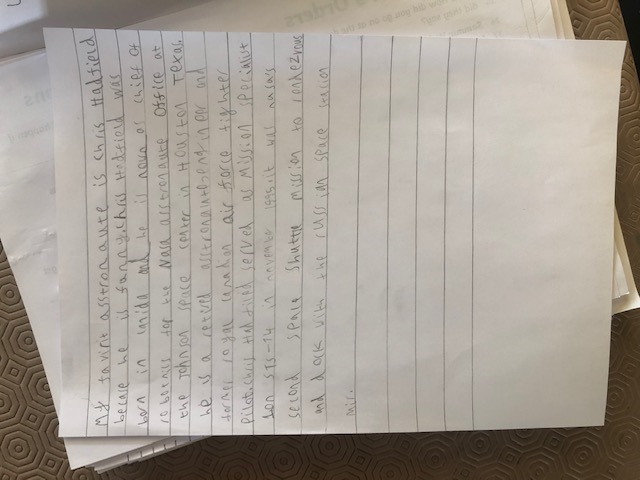 My favirit asstronaute is chris Hadfield
becase he is funny.chris Hadfield was
born in canida and he is noun as chief of
robotics for the Nasa asstronaute Office at
the Johnson space center in Houston Texas.
he is a retired asstronaute engineer and
former royal canadian air force fighter
Pilot.chris Hadfiled served as Mission specialist
1 on STS-74 in november 1995.it was nasas
second space Shutte mission to rendezvous
and dock with the russian space station
mir.